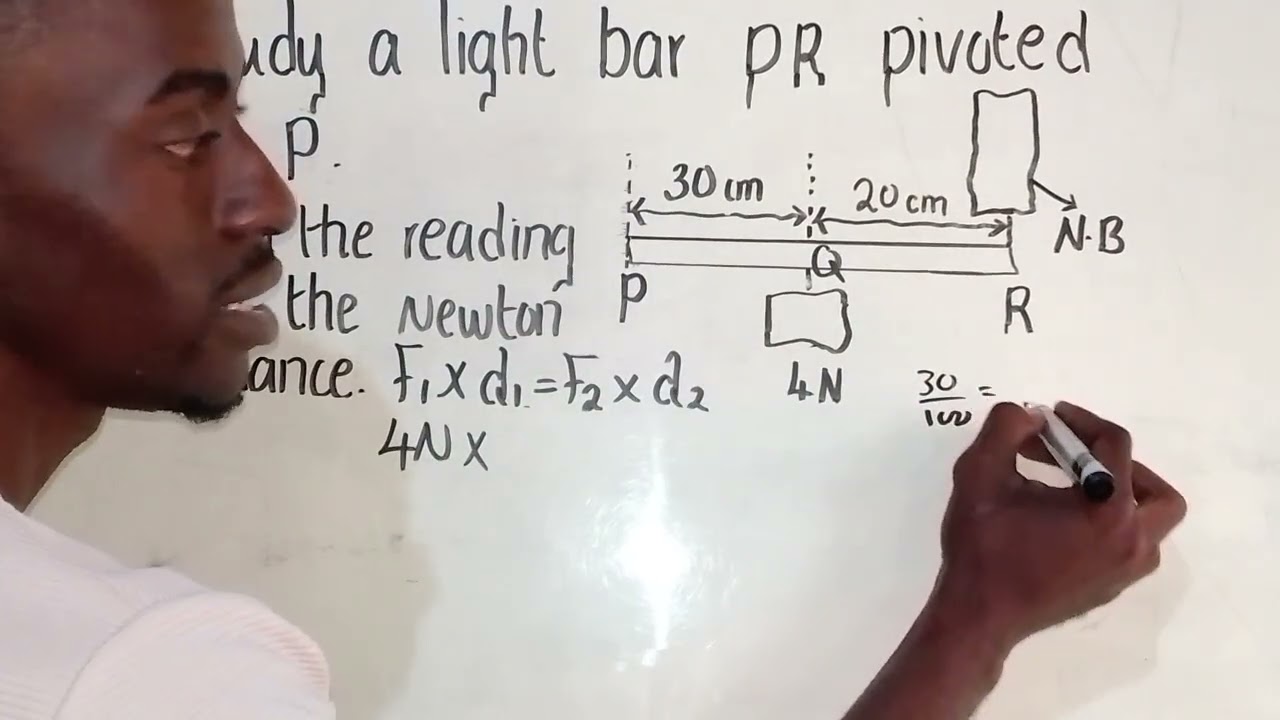 a light bar PR pivoted
P.
the reading
the Newton
F₁ x d₁ = F₂ x d₂
4N x
30 cm
20 cm
N.B
P
Q
R
4N
30/100 =